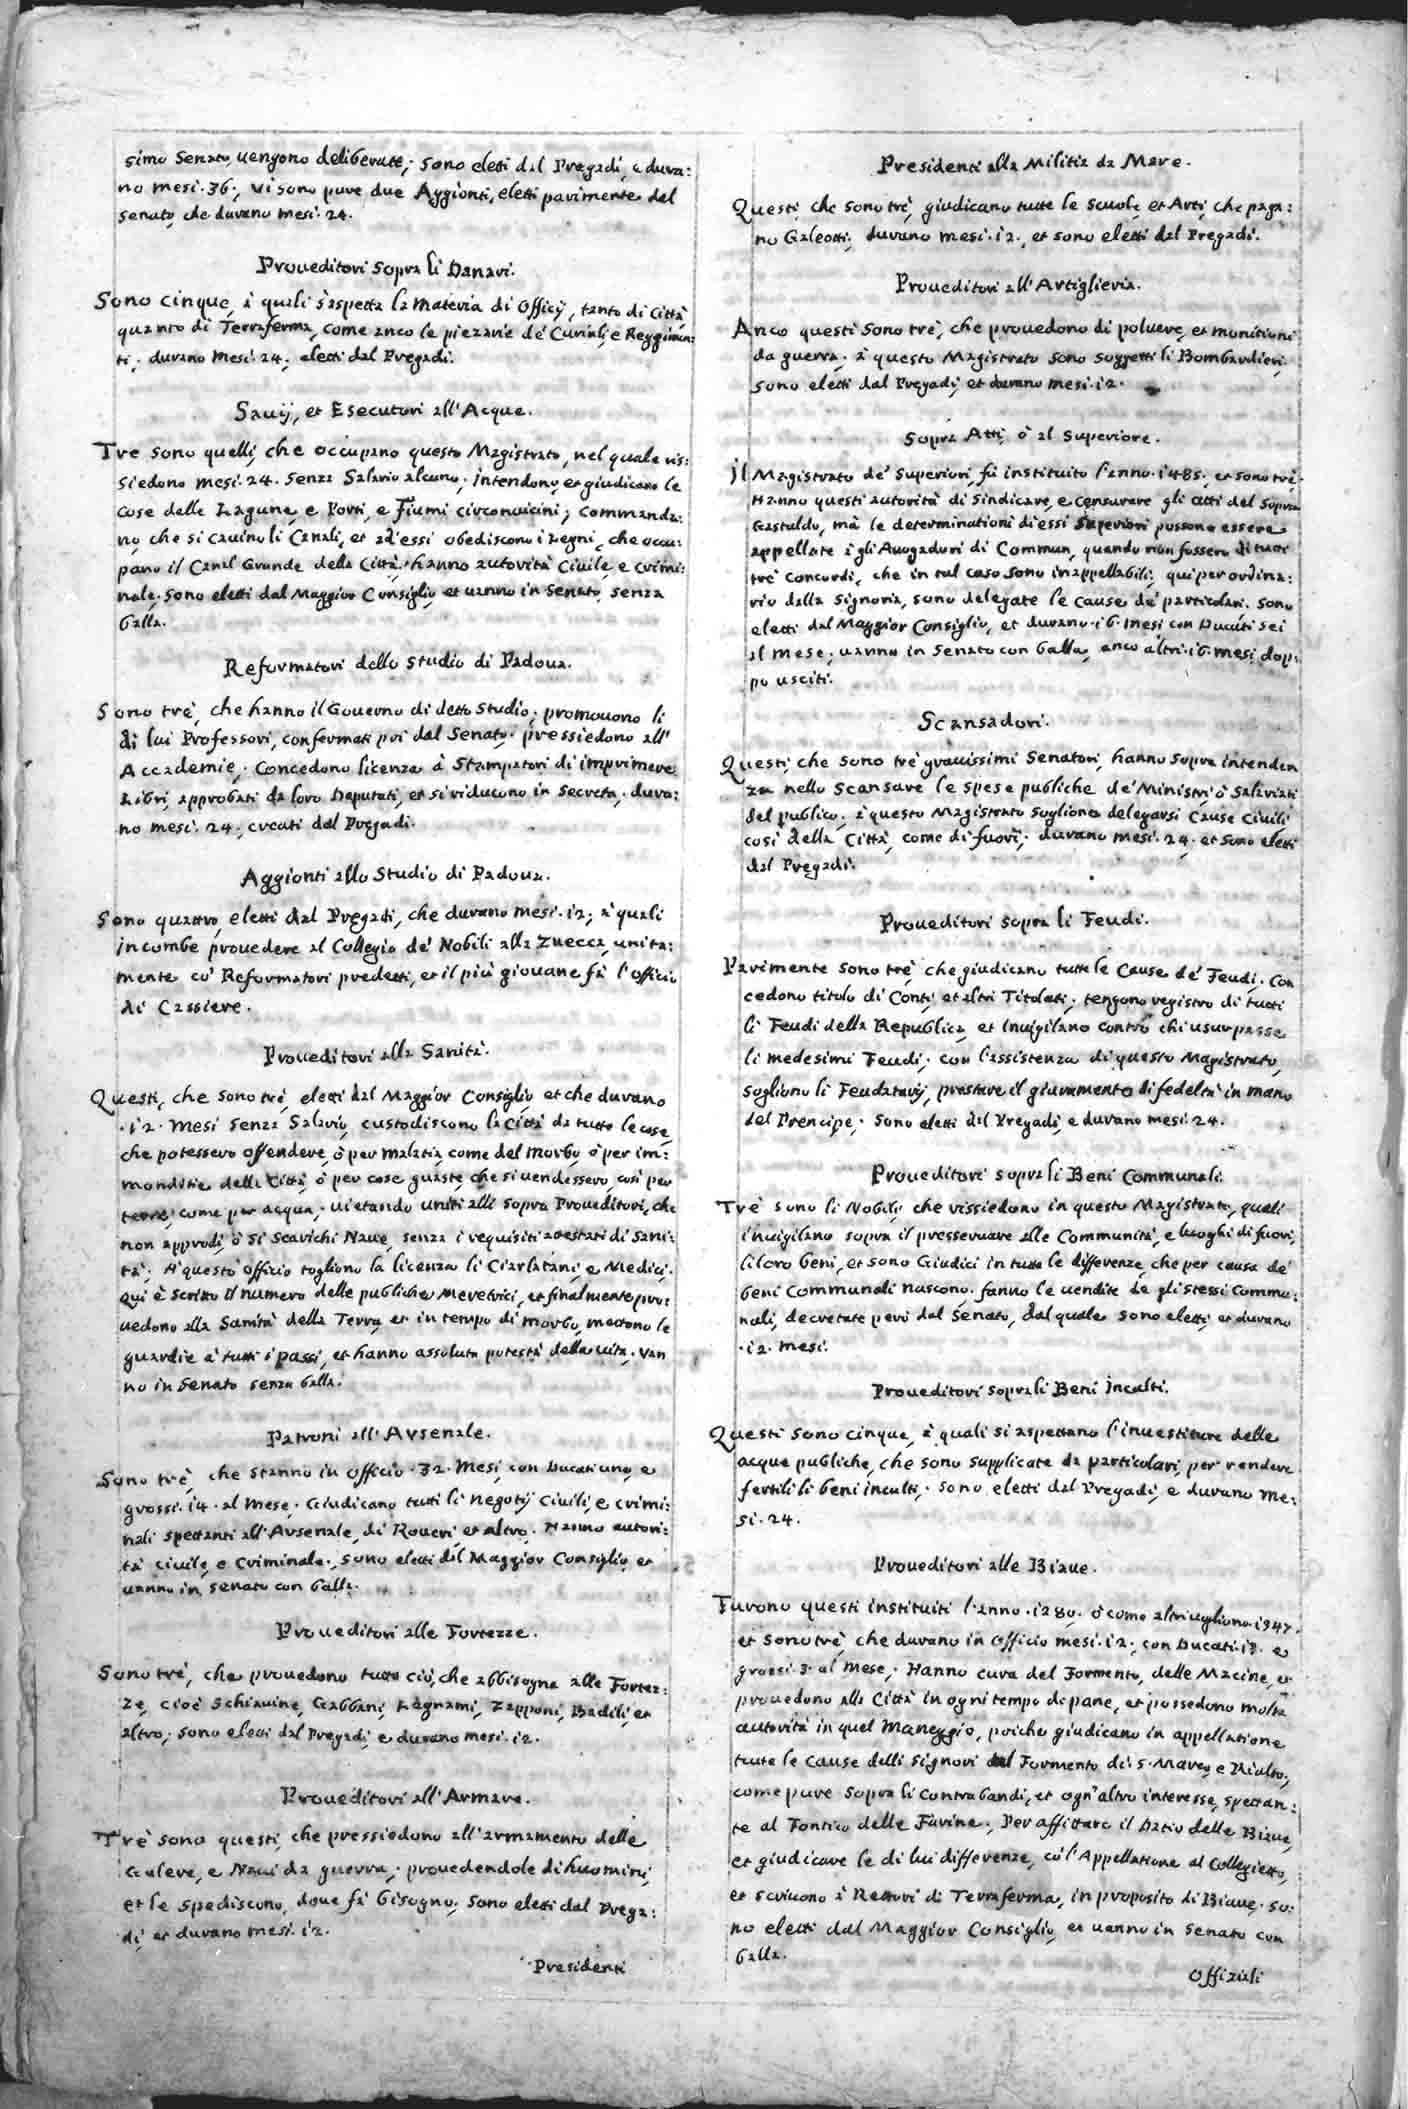 simo Senato, uengono deliberate; sono eletti dal Pregadi, e dura:
no mesi .36., vi sono pure due Aggionti, eletti parimente dal
Senato, che durano mesi .24.
Proueditori sopra li Danari.
Sono cinque, à quali s'aspetta la materia di Officij, tanto di Città
quanto di Terraferma, come anco le piezarie de' Curiali, e Reggimen:
ti; durano mesi .24. eletti dal Pregadi.
Sauij, et Esecutori all'Acque.
Tre sono quelli, che occupano questo Magistrato, nel quale ris:
siedono mesi .24. senza Salario alcuno; intendono, et giudicano le
cose delle Lagune, e Porti, e Fiumi circonuicini; commanda:
no, che si cauino li Canali, et ad essi obediscono i Legni, che occu:
pano il Canal Grande della Città; hanno autorità Ciuile, e crimi:
nale. Sono eletti dal Maggior Consiglio, et uanno in Senato, senza
balla.
Reformatori dello studio di Padoua.
Sono trè, che hanno il Gouerno di detto Studio; promouono li
di lui Professori, confermati poi dal Senato; pressiedono all'
Accademie; Concedono licenza à Stampatori di imprimere
Libri, approbati da loro Deputati, et si riducono in Secreta; dura:
no mesi .24. creati dal Pregadi.
Aggionti allo Studio di Padoua.
Sono quattro, eletti dal Pregadi, che durano mesi .12; à quali
incombe prouedere al Collegio de' Nobili alla Zuecca, unita:
mente co' Reformatori predetti, et il più giouane fà l'officio
di Cassiere.
Proueditori alla Sanità.
Questi, che sono trè, eletti dal Maggior Consiglio, et che durano
.12. Mesi senza Salario, custodiscono la Città da tutte le cose,
che potessero offendere, ò per malatia, come del morbo, ò per im:
monditie della Città, ò per cose guaste, che si uendessero, così per
terra, come per acqua; uietando uniti alli sopra Proueditori, che
non approdi, ò si scarichi Naue, senza i requisiti attestati di Sani:
tà; A' questo officio togliono la licenza li Ciarlatani, e Medici;
qui è scritto il numero delle publiche Meretrici, et finalmente pro:
uedono alla Sanità della Terra, et in tempo di morbo, mettono le
guardie à tutti i passi, et hanno assoluta potestà della uita; van
no in Senato senza balla.
Patroni all'Arsenale.
Sono trè, che stanno in officio .32. Mesi, con Ducati uno, e
grossi .14. al mese; Giudicano tutti li negotij Ciuili, e crimi:
nali spettanti all'Arsenale, di Roueri, et altro. Hanno autori:
tà ciuile, e Criminale; sono eletti dal Maggior Consiglio, et
uanno in Senato con balla.
Proueditori alle Fortezze.
Sono trè, che prouedono tutto ciò, che abbisogna alle Fortez:
ze, cioè Schiauine, Gabbani, Legnami, Zapponi, Badili, et
altro; sono eletti dal Pregadi, e durano mesi .12.
Proueditori all'Armare.
Trè sono questi, che pressiedono all'armamento delle
Galere, e Naui da guerra; prouedendole di huomini,
et le spediscono, doue fà bisogno; sono eletti dal Prega:
di, et durano mesi .12.
Presidenti
Presidenti alla Militia da Mare.
Questi, che sono trè, giudicano tutte le Scuole, et Arti, che paga:
no Galeotti; durano mesi .12., et sono eletti dal Pregadi.
Proueditori all'Artiglieria.
Anco questi sono trè, che prouedono di poluere, et monitioni
da guerra; à questo Magistrato sono soggetti li Bombardieri;
sono eletti dal Pregadi, et durano mesi .12.
Sopra Atti, ò al Superiore.
Il Magistrato de' Superiori, fù instituito l'anno .1485. et sono trè.
Hanno questi autorità di Sindicare, e censurare gli atti del Sopra
Gastaldo, mà le determinationi di essi Superiori possono essere
appellate à gli Auogadori di Commun, quando non fossero di tutti
trè concordi, che in tal caso sono inappellabili; qui per ordina:
rio dalla Signoria, sono delegate le cause de' particolari. Sono
eletti dal Maggior Consiglio, et durano .16. mesi con Ducati sei
al mese; uanno in Senato con balla, anco altri .16. mesi dop:
po usciti.
Scansadori.
Questi, che sono trè grauissimi Senatori, hanno sopra intenden
za nello scansare le spese publiche de' Ministri, ò Salariati
del publico; à questo Magistrato sogliono delegarsi Cause Ciuili
così della Città, come di fuori; durano mesi .24. et sono eletti
dal Pregadi.
Proueditori sopra li Feudi.
Parimente sono trè, che giudicano tutte le Cause de' Feudi; Con
cedono titolo di Conti, et altri Titolati; tengono registro di tutti
li Feudi della Republica, et inuigilano contro chi usurpasse
li medesimi Feudi; con l'assistenza di questo Magistrato,
sogliono li Feudatarij, prestare il giuramento di fedeltà in mano
del Prencipe; Sono eletti dal Pregadi, e durano mesi .24.
Proueditori sopra li Beni Communali.
Trè sono li Nobili, che rissiedono in questo Magistrato, quali
inuigilano sopra il presseruare alle Communità, e luoghi di fuori,
li loro beni, et sono Giudici in tutte le differenze, che per causa de'
beni Communali nascono; fanno le uendite de gli stessi Commu:
nali, decretate però dal Senato, dal quale sono eletti, et durano
.12. mesi.
Proueditori sopra li Beni Inculti.
Questi sono cinque, à quali si aspettano l'inuestiture delle
acque publiche, che sono supplicate da particolari, per rendere
fertili li beni inculti; sono eletti dal Pregadi, e durano me:
si .24.
Proueditori alle Biaue.
Furono questi instituiti l'anno .1280. ò come altri uogliono .1347.
et sono trè, che durano in officio mesi .12., con Ducati .13. e
grossi .3. al mese; Hanno cura del Formento, delle Macine, et
prouedono alla Città in ogni tempo di pane, et possedono molta
autorità in quel Maneggio, poiche giudicano in appellatione
tutte le cause delli Signori del Formento di S. Marco, e Rialto;
come pure sopra li contrabandi, et ogn'altro interesse, spettan:
te al Fontico delle Farine; Per affittare il Datio delle Biaue,
et giudicare le di lui differenze, co' l'Appellatione al Collegietto,
et scriuono à Rettori di Terraferma, in proposito di Biaue; so:
no eletti dal Maggior Consiglio, et uanno in Senato con
balla.
Offiziali